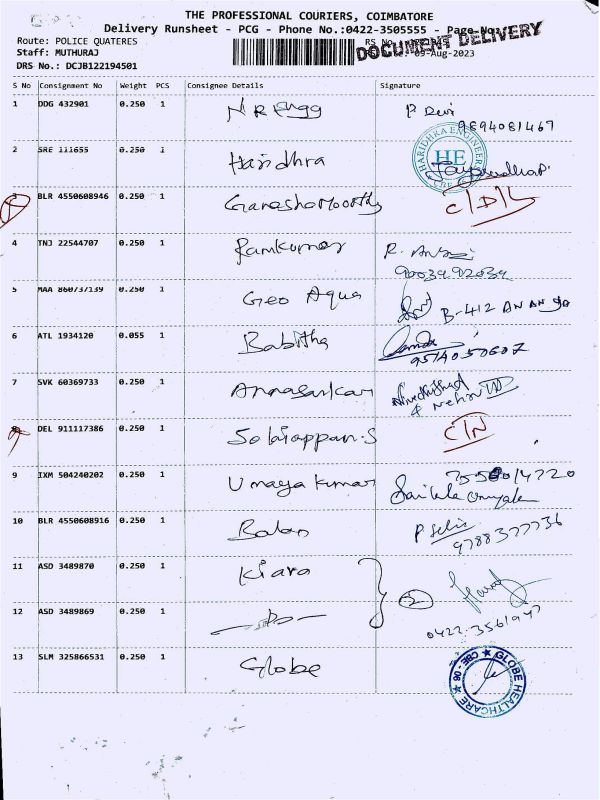 THE PROFESSIONAL COURIERS, COIMBATORE
Delivery Runsheet - PCG - Phone No.:0422-3505555 - Page No:
DOCUMENT DELIVERY
Route: POLICE QUATERES
Staff: MUTHURAJ
09-Aug-2023
DRS No.: DCJB122194501
S No Consignment No Weight PCS Consignee Details Signature
1 DDG 432901 0.250 1 P. Devi
9894081467
2 SRE 111655 0.250 1 Haridhra
HARIDHRA ENGINEER HE
3 BLR 4550608946 0.250 1 Ganeshamoorthy C/D/L
4 TNJ 22544707 0.250 1 Ramkumar
9003492034
5 MAA 860737139 0.250 1 Geo Aqua B-412
6 ATL 1934120 0.055 1 Babitha
9514050607
7 SVK 60369733 0.250 1 Annasankar
8 DEL 911117386 0.250 1 C/N
9 IXM 504240202 0.250 1 Umaya kumar
10 BLR 4550608916 0.250 1 Balan P. Selvi
9788377736
11 ASD 3489870 0.250 1 Kiara
2
12 ASD 3489869 0.250 1
0422-3561947
13 SLM 325866531 0.250 1 Globe
GLOBE HEALTHCARE CBE - 06